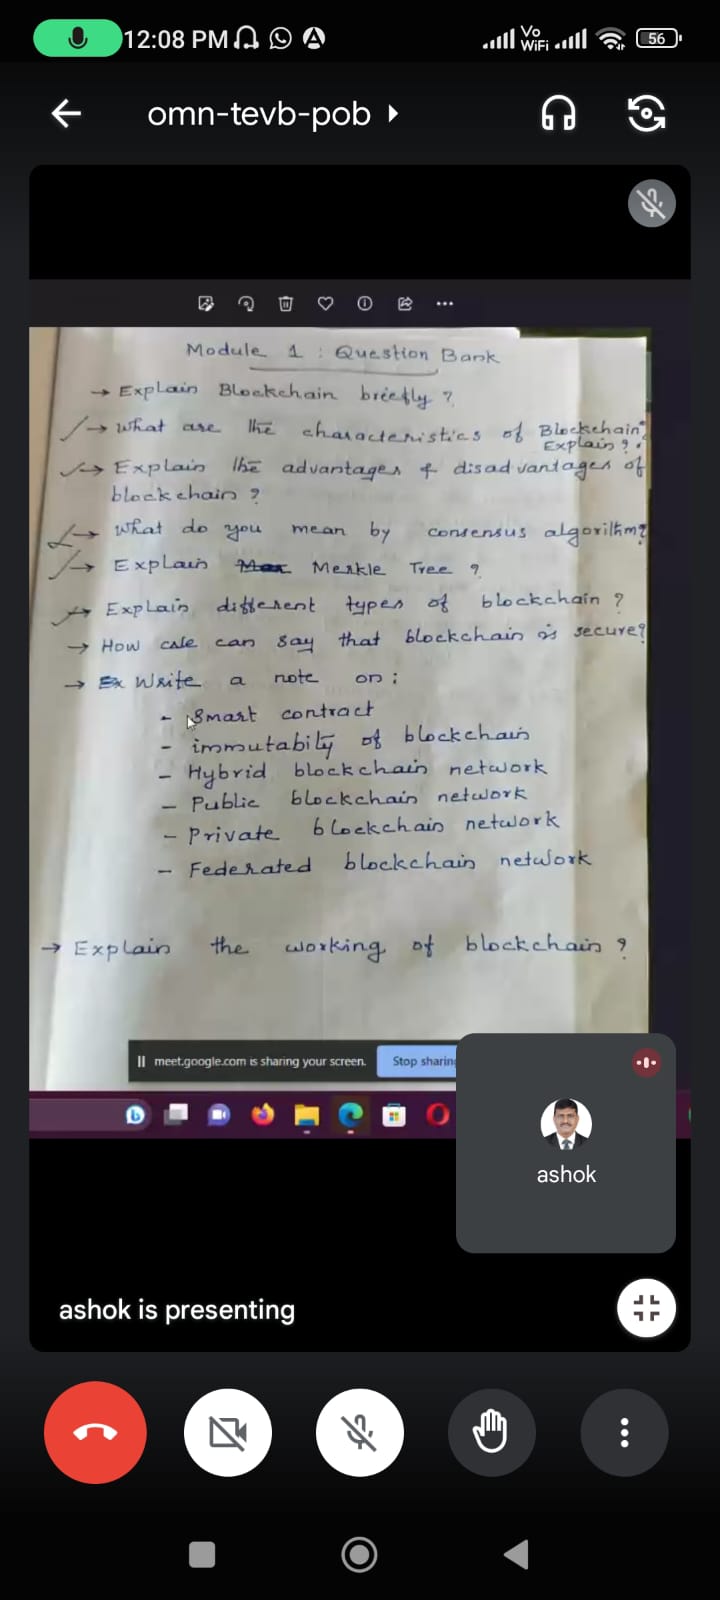 12:08 PM
Vo
WiFi
56
omn-tevb-pob
Module 1 : Question Bank
→ Explain Blockchain briefly ?
→ What are the characteristics of Blockchain?
Explain ?
→ Explain the advantages & disadvantages of
blockchain ?
→ What do you mean by consensus algorithm?
→ Explain Merkle Tree ?
→ Explain different types of blockchain ?
→ How can say that blockchain is secure?
→ Write a note on :
- Smart contract
- immutabity of blockchain
- Hybrid blockchain network
- Public blockchain network
- Private blockchain network
- Federated blockchain network
→ Explain the working of blockchain ?
meet.google.com is sharing your screen.
Stop sharing
ashok
ashok is presenting